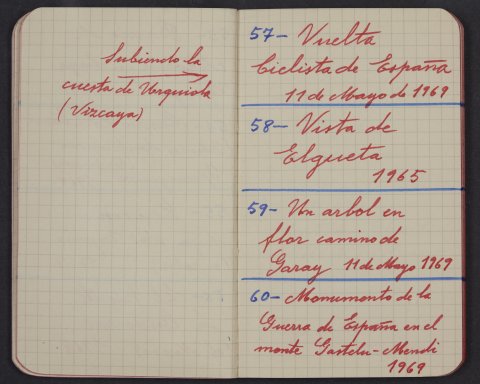 Subiendo la
cuesta de Urquiola
(Vizcaya)
57- Vuelta
Ciclista de España
11 de Mayo de 1969
58- Vista de
Elgueta
1965
59- Un arbol en
flor camino de
Garay 11 de Mayo 1969
60- Monumento de la
Guerra de España en el
monte Gastelu-Mendi
1969